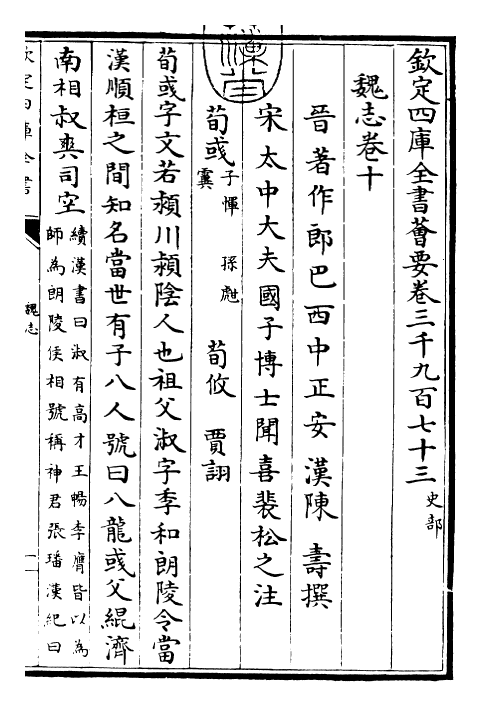 欽定四庫全書薈要卷三千九百七十三 史部
魏志卷十
晉著作郎巴西中正安漢陳 壽撰
宋太中大夫國子博士聞喜裴松之注
荀彧 子惲 孫甝 荀攸 賈詡
寘
荀彧字文若潁川潁陰人也祖父淑字季和朗陵令當
漢順桓之間知名當世有子八人號曰八龍彧父緄濟
南相叔爽司空 續漢書曰淑有高才王暢李膺皆以為
師為朗陵侯相號稱神君張璠漢紀曰
欽定四庫全書
魏志
一